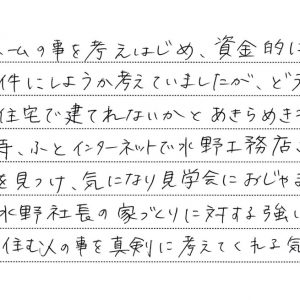 ームの事を考えはじめ、資金的に
件にしようか考えていましたが、どう
住宅で建てれないかとあきらめき
時、ふとインターネットで水野工務店
を見つけ、気になり見学会におじゃま
水野社長の家づくりに対する強い
住む人の事を真剣に考えてくれる気